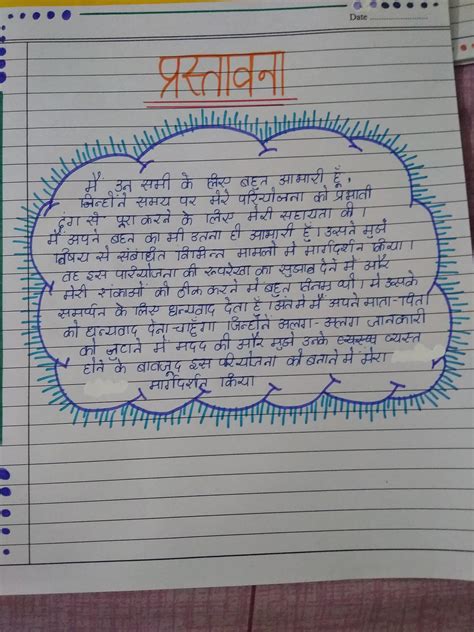 Date
प्रस्तावना
मैं उन सभी के लिए बहुत आभारी हूँ,
जिन्होंने समय पर मेरे परियोजना को प्रभावी
ढंग से पूरा करने के लिए मेरी सहायता की।
मैं अपने बहन का भी उतना ही आभारी हूँ। उसने मुझे
विषय से संबंधित विभिन्न मामलों में मार्गदर्शन किया।
वह इस परियोजना की रूपरेखा का सुझाव देने में और
मेरी शंकाओं को ठीक करने में बहुत थी। मैं उसके
समर्थन के लिए धन्यवाद देता हूँ। अंत में मैं अपने माता-पिता
को धन्यवाद देना चाहूँगा जिन्होंने अलग-अलग जानकारी
को जुटाने में मदद की और मुझे उनके व्यस्त
होने के बावजूद इस परियोजना को बनाने में मेरा
मार्गदर्शन किया